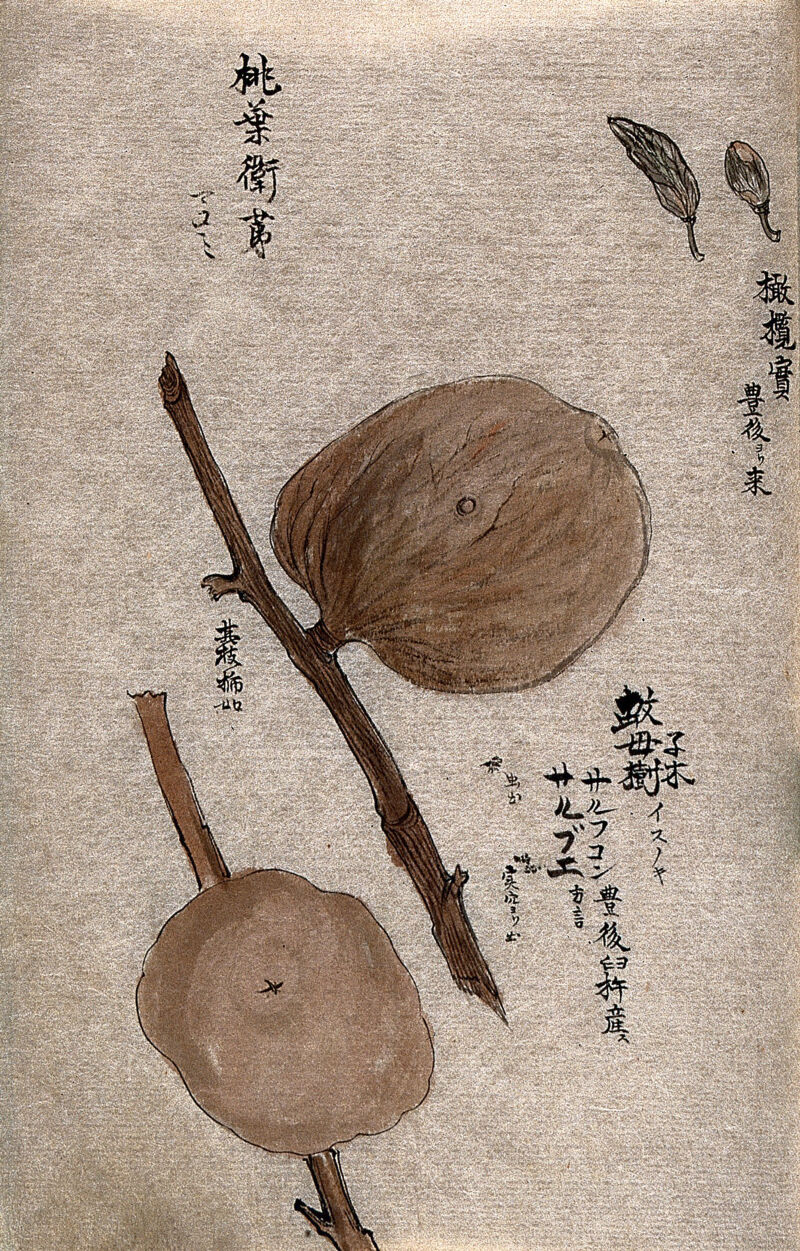 橄欖實
豊後ヨリ来
桃葉衛茅
マユミ
蚊母樹
子木
イスノヤ
サルフコン 豊後臼杵産ス
サルブエ 方言
虫か
実穴ヨリ出
其枝